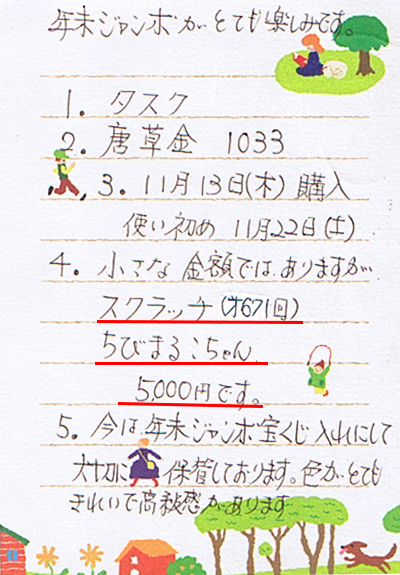 年末ジャンボがとても楽しみです。
1. タスク
2. 唐草金 1033
3. 11月13日(木) 購入
使い初め 11月22日(土)
4. 小さな金額ではありますが
スクラッチ(才671回)
ちびまるこちゃん
5,000円です。
5. 今は、年末ジャンボ宝くじ入れにして
大切に保管しております。色がとても
きれいで高級感があります